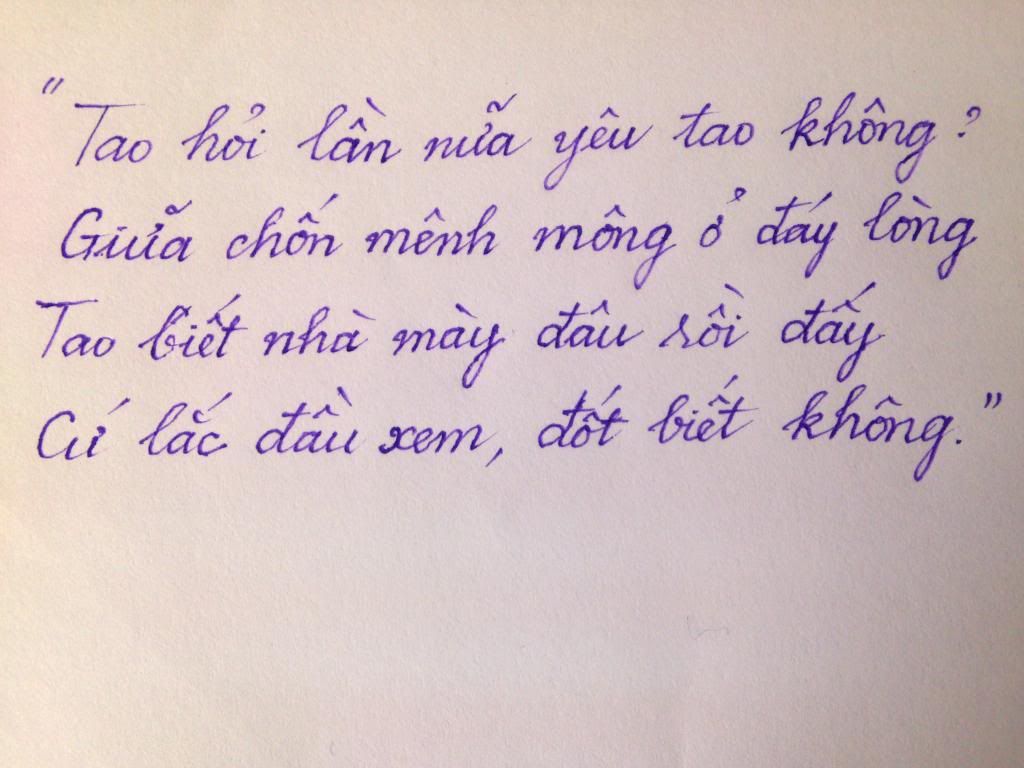 "Tao hỏi lần nữa yêu tao không?
Giữa chốn mênh mông ở đáy lòng
Tao biết nhà mày đâu rồi đấy
Cứ lắc đầu xem, đốt biết không."